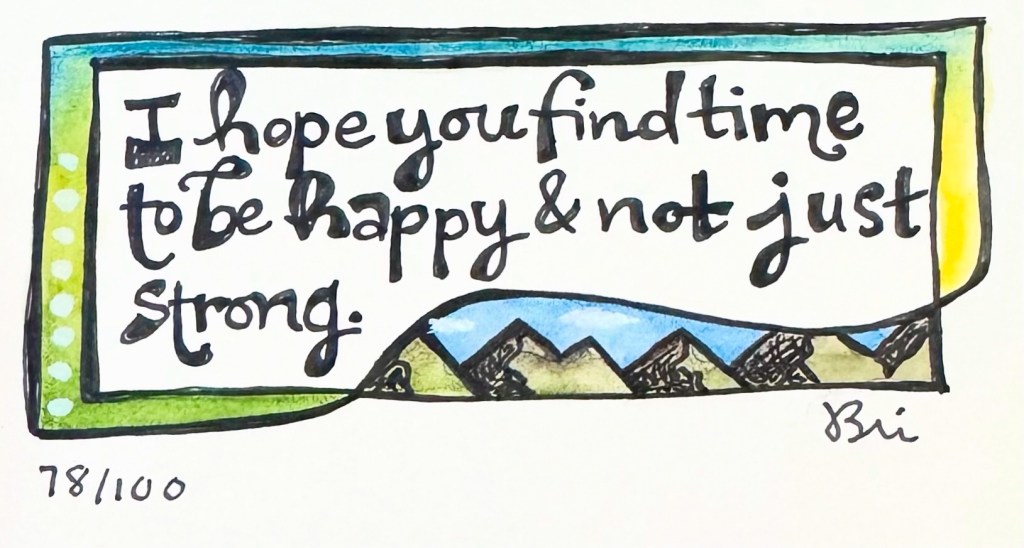 I hope you find time
to be happy & not just
strong.
Bri
78/100